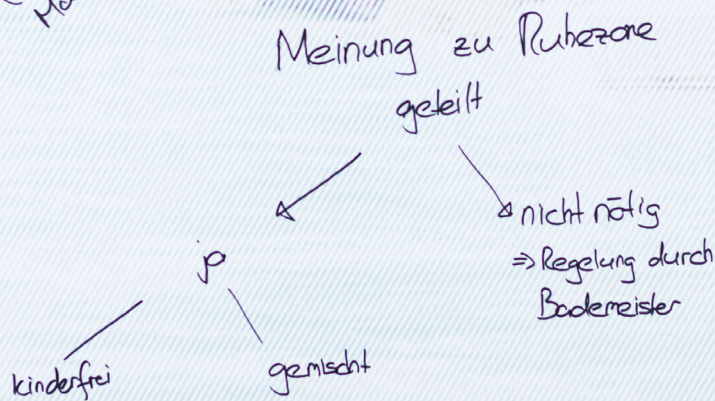 Meinung zu Ruhezone
geteilt
nicht nötig
⇒ Regelung durch
Bademeister
ja
kinderfrei
gemischt